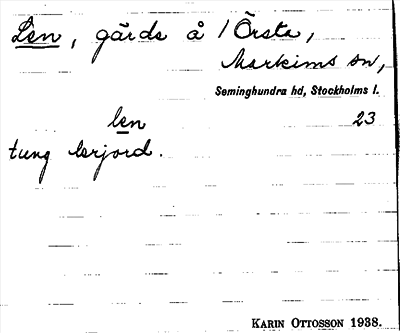 Len, gärde å 1 Örsta,
Markims sn,
Seminghundra hd, Stockholms l.
len 23
tung lerjord.
KARIN OTTOSSON 1938.